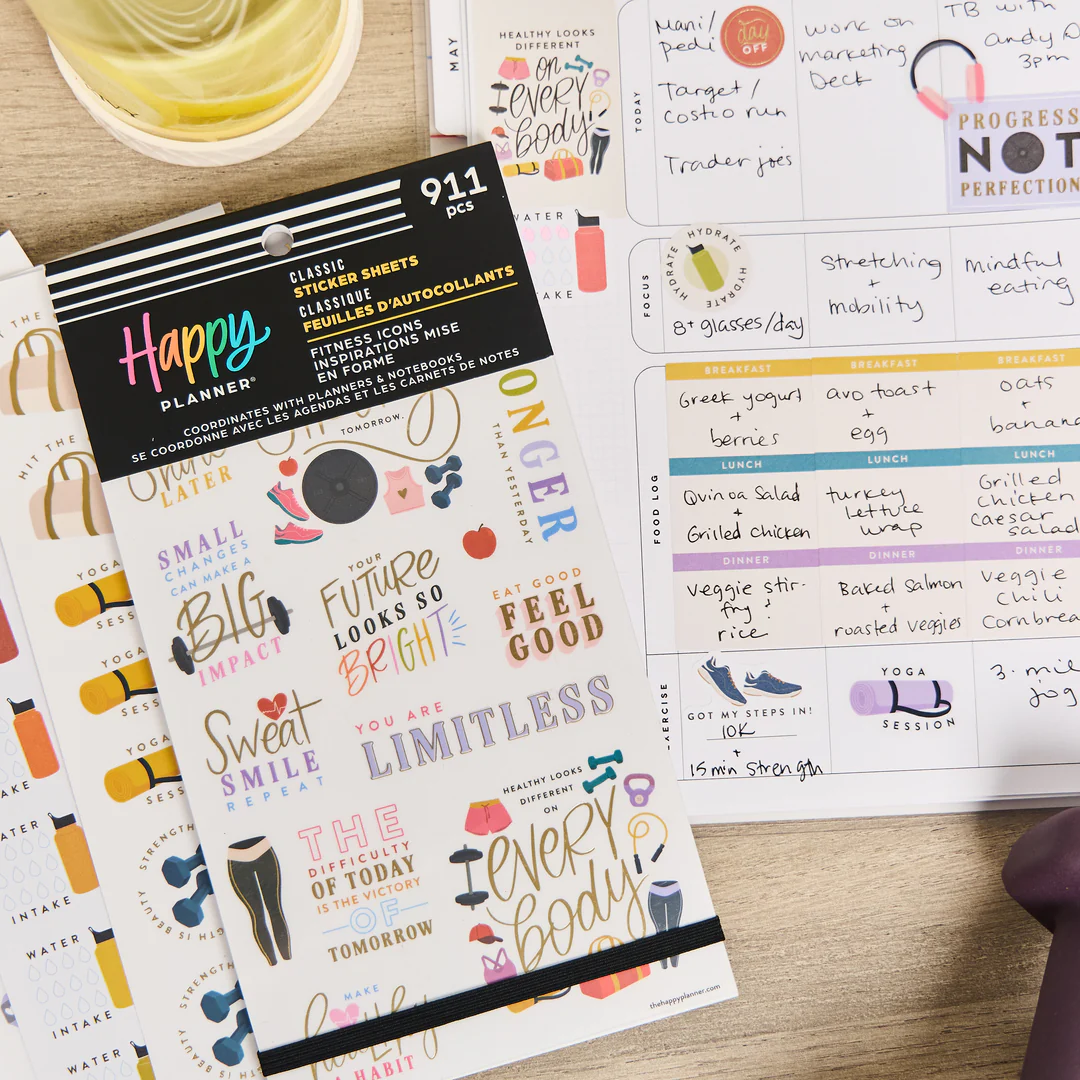 MAY
HEALTHY LOOKS
DIFFERENT
on
every
body
WATER
INTAKE
TODAY
Mani/
pedi
day
OFF
Target/
costco run
Trader joe's
work on
marketing
Deck
TB with
andy
3pm
PROGRESS
NOT
PERFECTION
FOCUS
HYDRATE HYDRATE HYDRATE
8+ glasses/day
stretching
+
mobility
mindful
eating
FOOD LOG
BREAKFAST
Greek yogurt
+
berries
BREAKFAST
avo toast
+
egg
BREAKFAST
oats
+
banana
LUNCH
Quinoa Salad
+
Grilled chicken
LUNCH
turkey
lettuce
wrap
LUNCH
Grilled
chicken
caesar
salad
DINNER
veggie stir-
fry &
rice
DINNER
Baked salmon
+
roasted veggies
DINNER
veggie
chili
Cornbrea
EXERCISE
GOT MY STEPS IN!
10K
+
15 min strength
YOGA
SESSION
3-mile
jog
911
pcs
CLASSIC
STICKER SHEETS
CLASSIQUE
FEUILLES D'AUTOCOLLANTS
Happy
PLANNER®
FITNESS ICONS
INSPIRATIONS MISE
EN FORME
COORDINATES WITH PLANNERS & NOTEBOOKS
SE COORDONNE AVEC LES AGENDAS ET LES CARNETS DE NOTES
LATER
TOMORROW.
ONGER
THAN YESTERDAY
SMALL
CHANGES
CAN MAKE A
BIG
IMPACT
YOUR
FUTURE
LOOKS SO
BRIGHT
EAT GOOD
FEEL
GOOD
Sweat
SMILE
REPEAT
YOU ARE
LIMITLESS
THE
DIFFICULTY
OF TODAY
IS THE VICTORY
OF
TOMORROW
HEALTHY LOOKS
DIFFERENT
ON
every
body
MAKE
healthy
A HABIT
thehappyplanner.com
HIT THE
HIT THE
YOGA
SESS
YOGA
SESS
YOGA
SESS
STRENGTH IS BEAUTY
STRENGTH IS BEAUTY
AKE
WATER
INTAKE
WATER
INTAKE
WATER